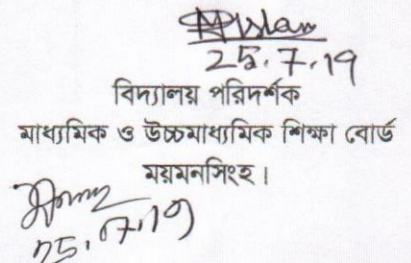 25.7.19
বিদ্যালয় পরিদর্শক
মাধ্যমিক ও উচ্চমাধ্যমিক শিক্ষা বোর্ড
ময়মনসিংহ।
25.07.19